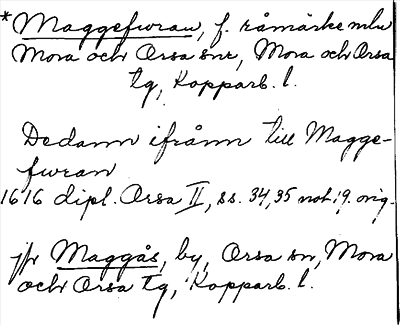 *Maggefuran, f. råmärke mln
Mora och Orsa snr, Mora och Orsa
tg, Kopparb. l.
Dedann ifrånn till Magge-
furan
1616 dipl. Orsa II, ss. 34, 35 not. 19. orig.
jfr Maggås, by, Orsa sn, Mora
och Orsa tg, Kopparb. l.